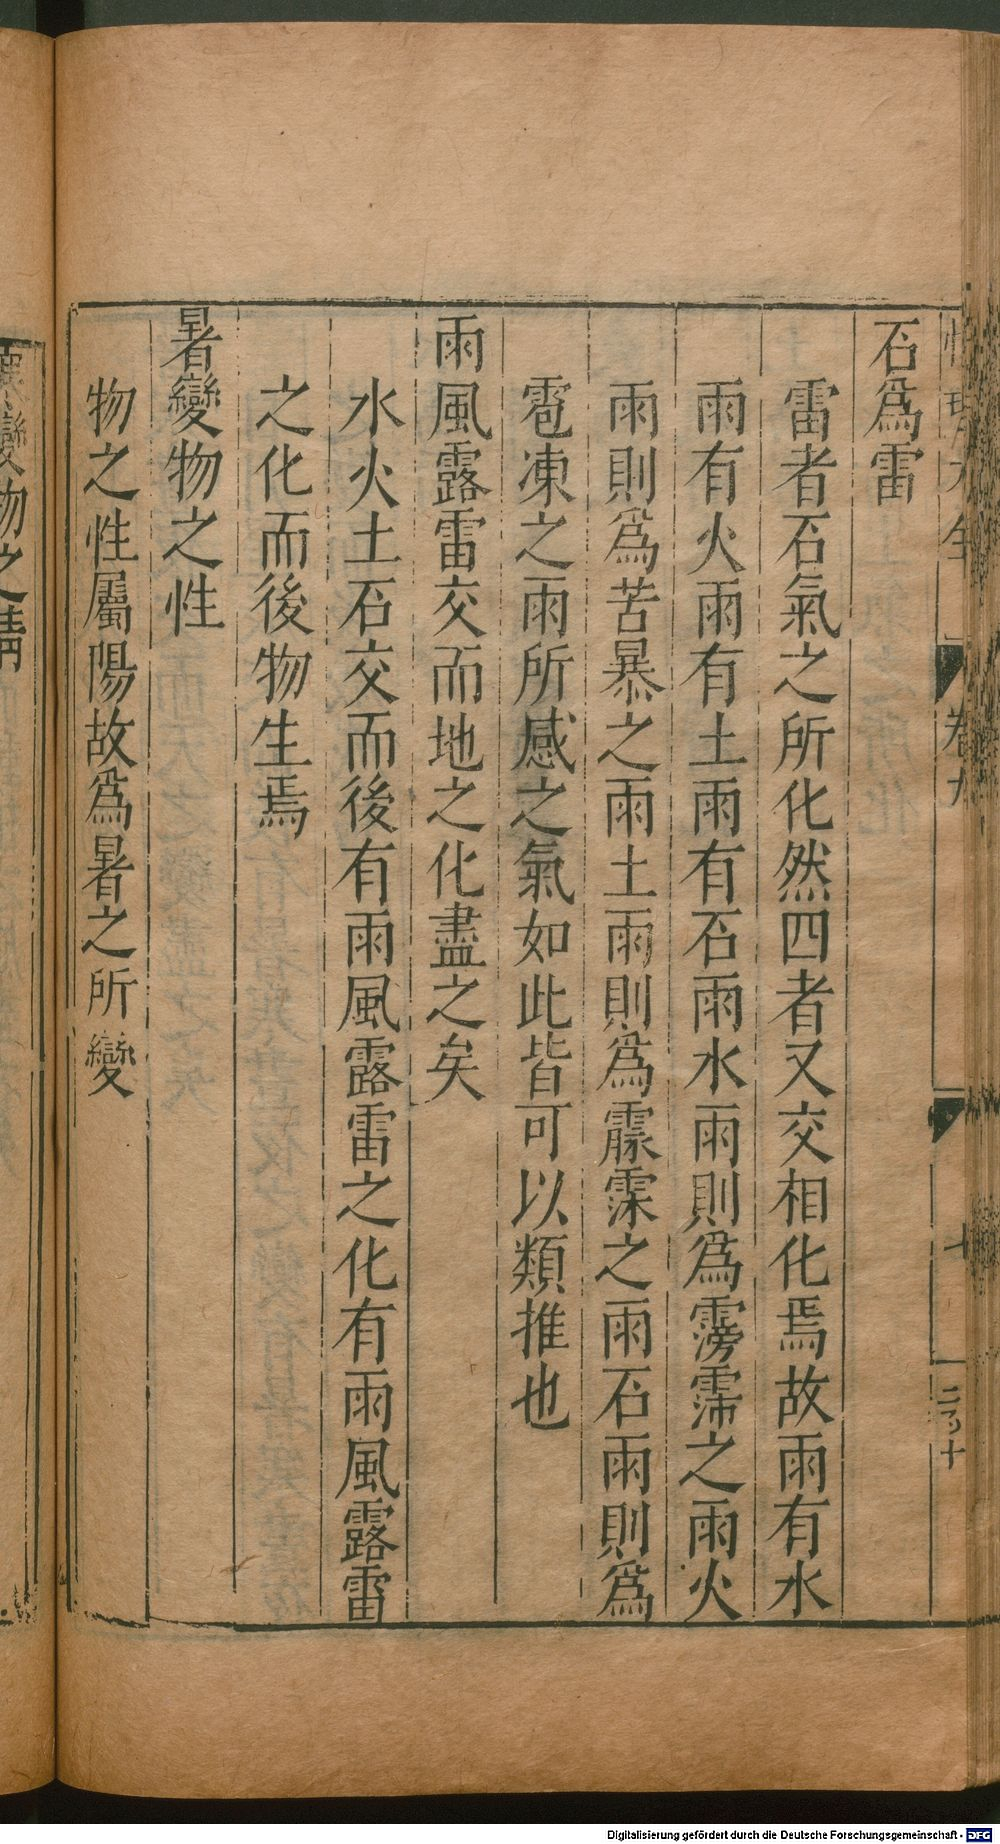 石為雷
雷者石氣之所化然四者又交相化焉故雨有水
雨有火雨有土雨有石雨水雨則為霶霈之雨火
雨則為苦暴之雨土雨則為霡霂之雨石雨則為
雹凍之雨所感之氣如此皆可以類推也
雨風露雷交而地之化盡之矣
水火土石交而後有雨風露雷之化有雨風露雷
之化而後物生焉
暑變物之性
物之性屬陽故為暑之所變
變物之情
卷九
Digitalisierung gefördert durch die Deutsche Forschungsgemeinschaft - DFG